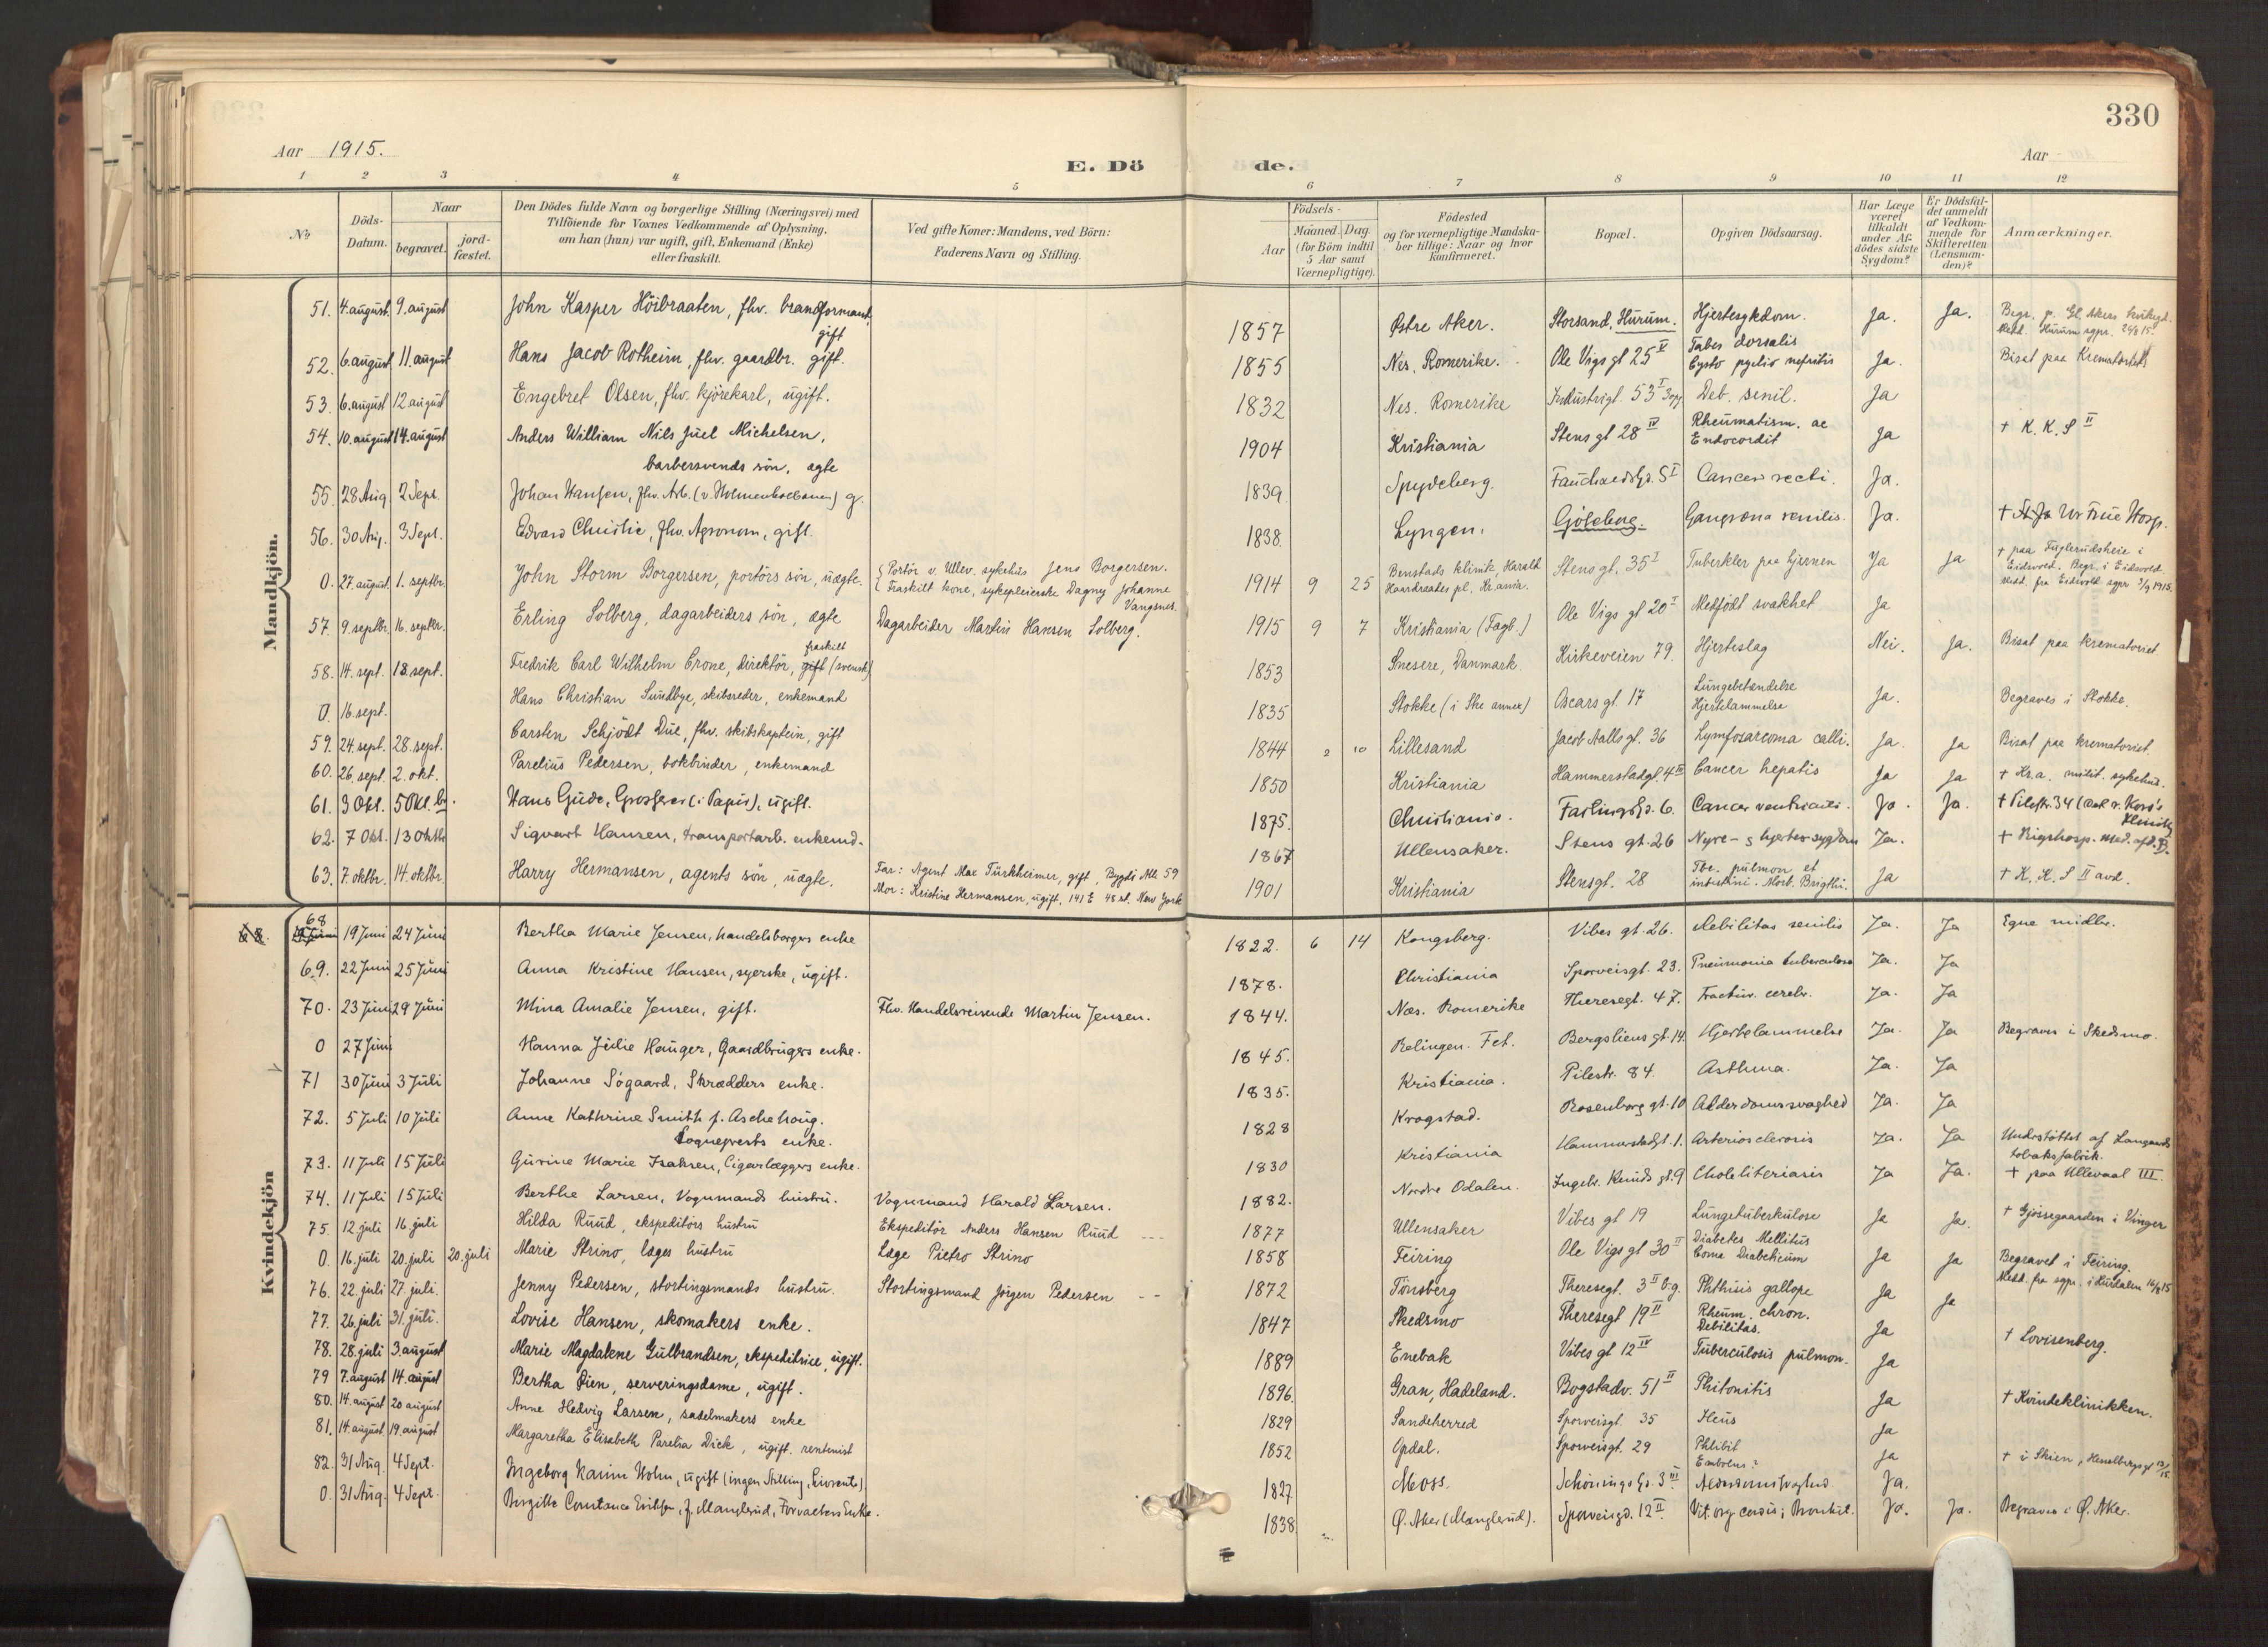 330
Aar 1915.
E. Dö de.
Aar
1 2 3 4 5 6 7 8 9 10 11 12
No. Döds-Datum. Naar begravet. jord-fæstet.
Den Dödes fulde Navn og borgerlige Stilling (Næringsvei) med
Tilföiende for Voxnes Vedkommende af Oplysning,
om han (hun) var ugift, gift, Enkemand (Enke)
eller fraskilt.
Ved gifte Koner: Mandens, ved Börn:
Faderens Navn og Stilling.
Födsels-
Aar Maaned. Dag.
(for Börn indtil
5 Aar samt
Værnepligtige).
Födested
og for værnepligtige Mandska-
ber tillige: Naar og hvor
konfirmeret.
Bopæl.
Opgiven Dödsaarsag.
Har Læge
været
tilkaldt
under Af-
dödes sidste
Sygdom?
Er Dödsfal-
det anmeldt
af Vedkom-
mende for
Skifteretten
(Lensman-
den)?
Anmærkninger.
Mandkjön.
51. 4. august. 9. august John Kasper Höibraaten, fhv. brandformand, gift 1857 Østre Aker. Storsand, Hurum. Hjertesykdom. Ja. Ja. Begr. p. Gl. Akers
52. 6. august 11. august Hans Jacob Rotheim, fhv. gaardbr. gift. 1855 Nes, Romerike. Ole Vigs gt 25 II Tabes dorsalis Cysto pyelio nefritis Ja. Bisat paa Krematoriet
53. 6. august 12 august Engebret Olsen, fhv. kjörekarl, ugift. 1832 Nes. Romerike Industrigt. 53 I Deb. senil. Ja
54. 10. august 14. august Anders William Nils Juel Michelsen, barbersvends sön, ægte 1904 Kristiania Stens gt 28 IV Rheumatism. ac Endocordit Ja † K. K. S II
55. 28 Aug. 2 Sept. Johan Hansen, fhv. Arb. (v. Holmenkolbanen) g. 1839. Spydeberg. Fauchaldsgd. 5 I Cancer recti. Ja.
56. 30 Aug. 3 Sept. Edvard Christie, fhv. Agronom, gift. 1838. Lyngen. Göteborg. Gangræna senilis. Ja. † Vor Frue Hosp.
0. 27. august. 1. septbr. John Storm Borgersen, portörs sön, uægte. Portör v. Ullev. sykehus Jens Borgersen. Fraskilt kone, sykepleierske Dagny Johanne Vangsnes. 1914 9 25 Benstads klinik, Harald Haardraades pl. Kr.ania. Stens gt. 35 I Tuberkler paa hjernen Ja Ja † paa Fuglerudsheie i Eidsvold. Begr. i Eidsvold. Medd. fra Eidsvold sgpr 3/9 1915.
57. 9. septbr. 16. septbr. Erling Solberg, dagarbeiders sön, ægte Dagarbeider Martin Hansen Solberg. 1915 9 7 Kristiania (Fagb.) Ole Vigs gt 20 I Medfödt svakhet Ja
58. 14. sept. 18. sept. Fredrik Carl Wilhelm Crone, direktör, fraskilt gift (svensk) 1853 Snesere, Danmark Kirkeveien 79. Hjerteslag Nei. Ja. Bisat paa krematoriet
0. 16. sept. Hans Christian Sundbye, skibsreder, enkemand 1835 Stokke (i Ske annex) Oscars gt. 17 Lungebetændelse Hjertelammelse Ja. Begraves i Stokke.
59. 24. sept. 28. sept. Carsten Schjödt Due, fhv. skibskaptein, gift 1844 2 10 Lillesand Jacob Aalls gt. 36 Lymfosarcoma colli. Ja. Ja Bisat paa krematoriet.
60. 26. sept. 2. okt. Parelius Pedersen, bokbinder, enkemand 1850 Kristiania Hammerstadgt. 4 III Cancer hepatis Ja Ja † Kr.a. milit. sykehus.
61. 3 Okt. 5 Okt. Hans Gude, Grosserer (i Papir), ugift. 1875. Christiania. Farlings gd. 6. Cancer ventriculi. Ja. Ja. † Pilestr. 34
62. 7 Okt. 13 Oktbr Sigvart Hansen, transportarb. enkemd. 1867 Ullensaker. Stens gt. 26 Nyre- & hjertesygdom Ja. † Rigshosp. Med. afd. B.
63. 7. oktbr. 14. oktbr. Harry Hermansen, agents sön, uægte. Far: Agent Max Türkheimer, gift, Bygdö Allé 59 Mor: Kristine Hermansen, ugift, 141 E 48 st. New York 1901 Kristiania Stensgt. 28 Tbc. pulmon et intestini. Morb. Brigthii. Ja † K. K. S II avd.
Kvindekjön
68 19 Juni 24 Juni Bertha Marie Jensen, handelsborgers enke 1822. 6 14 Kongsberg. Vibes gt. 26. Debilitas senilis Ja. Ja Egne midler.
69. 22 Juni 25 Juni Anna Kristine Hansen, syerske, ugift. 1878. Christiania Sporveisgt. 23. Pneumonia tuberculosa Ja. Ja
70. 23 Juni 29 Juni Mina Amalie Jensen, gift. Fhv. Handelsreisende Martin Jensen. 1844. Næs. Romerike Theresegt. 47. Fractur. cerebr. Ja. Ja
0 27 Juni Hanna Julie Hauger, Gaardbrugers enke. 1845. Relingen. Fet. Bergsliens gt. 14. Hjertelammelse Ja. Ja Begraves i Skedsmo.
71 30 Juni 3 Juli Johanne Sögaard, Skrædders enke. 1835. Kristiania. Pilestr. 84. Asthma. Ja. Ja
72. 5 Juli 10 Juli Anne Kathrine Smith f. Aschehoug. Sogneprests enke. 1828 Krogstad. Rosenborg gt. 10 Alderdomssvaghed Ja. Ja
73. 11 Juli 15 Juli Gurine Marie Isaksen, Cigarlæggers enke. 1830 Kristiania Hammerstadgt. 1. Arteriosclerosis Ja. Ja Understöttet af Langaards tobaksfabrik.
74. 11 Juli 15 Juli Berthe Larsen, Vognmands hustru. Vognmand Harald Larsen. 1882. Nordre Odalen. Ingebr. Knuds gt. 9 Choleliteriasis Ja Ja. † paa Ullevaal III.
75. 12 juli 16. juli Hilda Ruud, ekspeditörs hustru Ekspeditör Anders Hansen Ruud 1877 Ullensaker Vibes gt 19 Lungetuberkulose Ja Ja. † Gjøssegaarden i Vinger
0. 16. juli 20. juli 20. juli Marie Strino, læges hustru Læge Pietro Strino 1858 Feiring Ole Vigs gt 30 II Diabetes Mellitus Coma Diabeticum Ja Ja Begravet i Feiring. Medd. fra sgpr. i Hurdalen 16/8 15
76. 22. juli 27. juli. Jenny Pedersen, stortingsmands hustru. Stortingsmand Jörgen Pedersen 1872 Tönsberg Theresegt. 3 II o.g. Phthisis gallope Ja Ja
77. 26. juli 31. juli. Lovise Hansen, skomakers enke. 1847 Skedsmo Theresegt 19 II Rheum. chron. Debilitas. Ja
78. 28. juli 3. august Marie Magdalene Gulbrandsen, ekspeditrice, ugift. 1889 Enebak Vibes gt 12 IV Tuberculosis pulmon. Ja † Lovisenberg.
79 7. august 14. august Bertha Öien, serveringsdame, ugift. 1896. Gran, Hadeland. Bogstadv. 51 II Phitonitis Ja † Kvindeklinikken.
80. 14. august 20 august Anne Hedvig Larsen, sadelmakers enke 1829 Sandeherred Sporveisgt. 35 Ileus Ja
81. 14. august. 19. august Margaretha Elisabeth Parelia Dick, ugift. rentenist 1852 Opdal. Sporveisgt. 29 Phlibit Embolus? Ja † i Skien,
82. 31 Aug. 4 Sept. Ingeborg Karine Holm, ugift (ingen Stilling, Livrente) 1827 Moss. Schönings gd. 3 III Alderdomssvaghed Ja.
0. 31 Aug. 4 Sept. Birgitte Constance Erichsen, f. Manglerud, Forvalters Enke. 1838 Ø. Aker (Manglerud). Sporveisgd. 12 II. Vit. org cordis; Bronkit. Ja. Ja. Begraves i Ø. Aker.